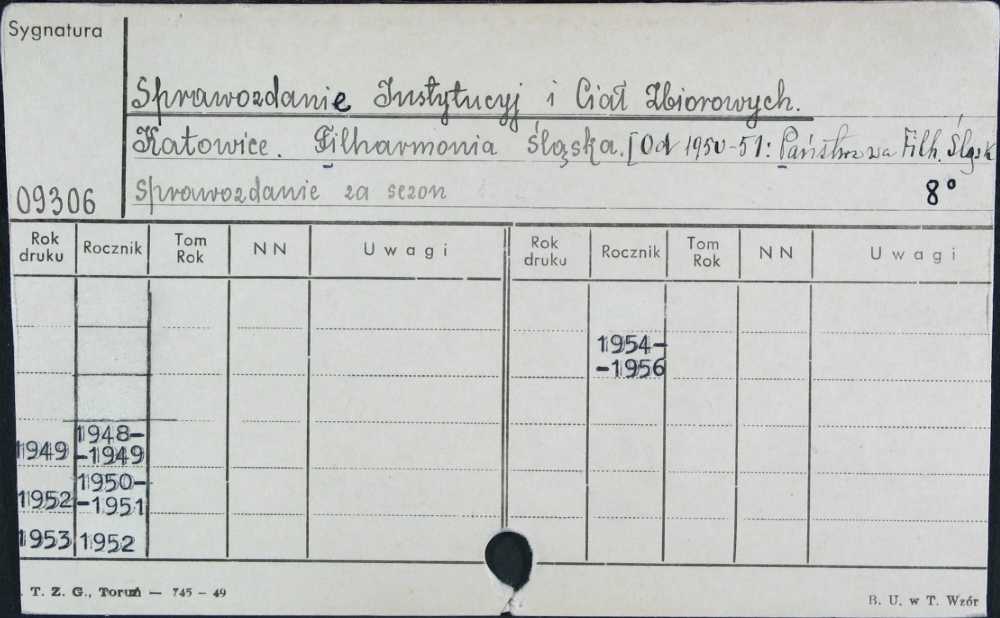 Sygnatura
Sprawozdanie Instytucyj i Ciał Zbiorowych.
Katowice. Filharmonia Śląska. [Od 1950-51: Państwowa Filh. Śląsk
09306 Sprawozdanie za sezon 8°
Rok druku Rocznik Tom Rok NN Uwagi Rok druku Rocznik Tom Rok NN Uwagi
1954-
-1956
1948-
1949 -1949
1950-
1952 -1951
1953 1952
T. Z. G., Toruń — 745 - 49 B. U. w T. Wzór